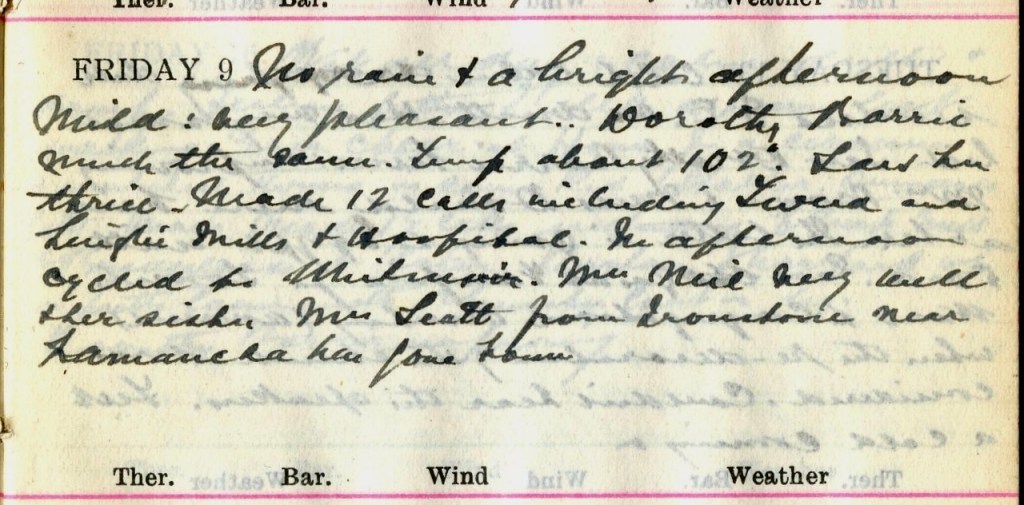 Ther. Bar. Wind Weather
FRIDAY 9 No rain & a bright afternoon
Mild: very pleasant.. Dorothy Barrie
much the same. Temp about 102°. Saw her
thrice. Made 12 calls including Tweed and
Mills & Hospital. In afternoon
cycled to Whitmuir. Mrs Neil very well
& her sister Mrs Scott from Ironstone near
Lamancha has gone home
Ther. Bar. Wind Weather